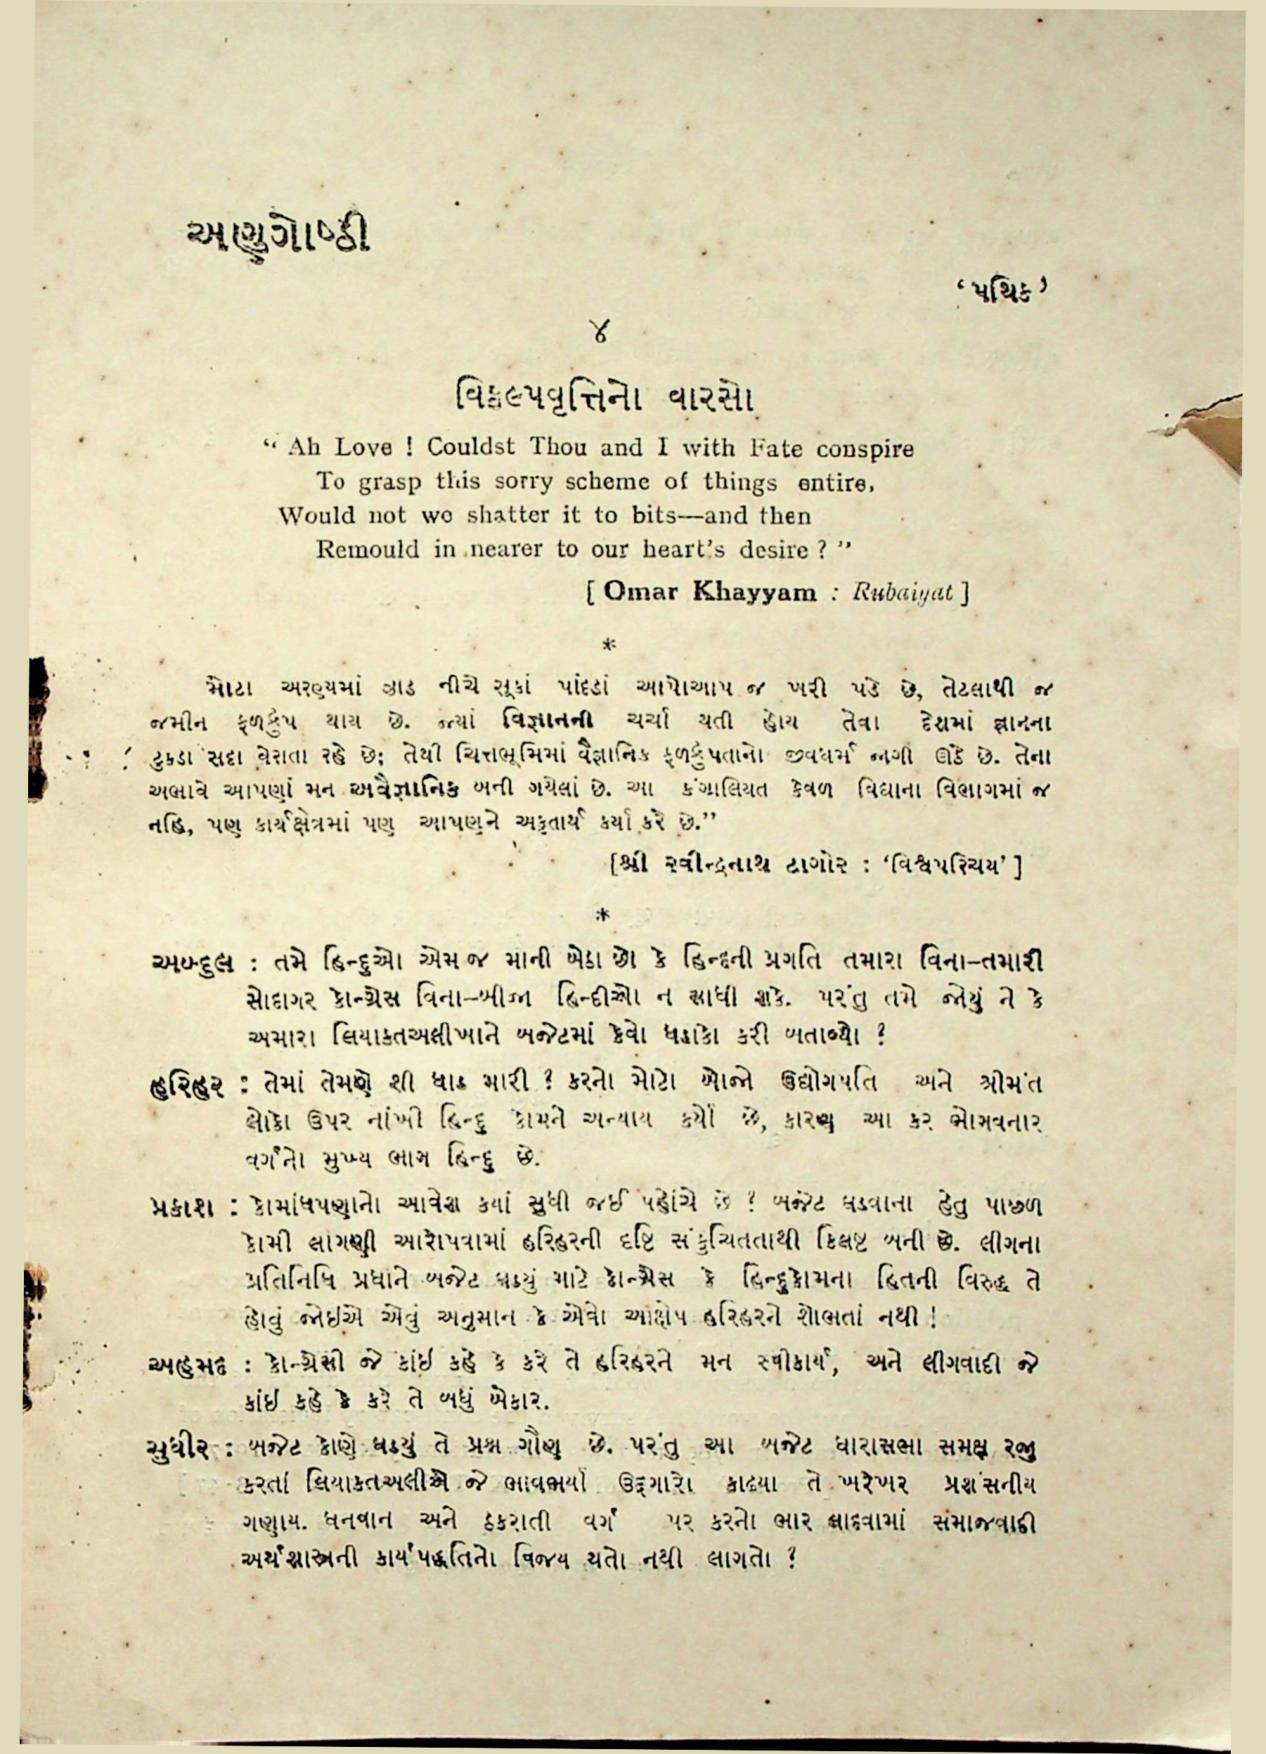 અણુગોષ્ઠી
‘પથિક’
૪
વિકલ્પવૃત્તિનો વારસો
“ Ah Love ! Couldst Thou and I with Fate conspire
To grasp this sorry scheme of things entire,
Would not we shatter it to bits—and then
Remould in nearer to our heart's desire ? ”
[ Omar Khayyam : Rubaiyat ]
*
મોટા અરણ્યમાં ઝાડ નીચે સૂકાં પાંદડાં આપોઆપ જ ખરી પડે છે, તેટલાથી જ
જમીન ફળદ્રુપ થાય છે. જ્યાં વિજ્ઞાનની ચર્ચા થતી હોય તેવા દેશમાં જ્ઞાનના
ટુકડા સદા વેરાતા રહે છે; તેથી ચિત્તભૂમિમાં વૈજ્ઞાનિક ફળદ્રુપતાનો જીવધર્મ જાગી ઊઠે છે. તેના
અભાવે આપણાં મન અવૈજ્ઞાનિક બની ગયેલાં છે. આ કંગાલિયત કેવળ વિદ્યાના વિભાગમાં જ
નહિ, પણ કાર્યક્ષેત્રમાં પણ આપણને અકૃતાર્થ કર્યા કરે છે.”
[શ્રી રવીન્દ્રનાથ ટાગોર : ‘વિશ્વપરિચય’ ]
*
અબ્દુલ : તમે હિન્દુઓ એમ જ માની બેઠા છો કે હિન્દની પ્રગતિ તમારા વિના–તમારી
સોદાગર કોન્ગ્રેસ વિના–બીજા હિન્દીઓ ન સાધી શકે. પરંતુ તમે જોયું ને કે
અમારા લિયાકતઅલીખાને બજેટમાં કેવો ધડાકો કરી બતાવ્યો ?
હરિહર : તેમાં તેમણે શી ધાડ મારી ? કરનો મોટો બોજો ઉદ્યોગપતિ અને શ્રીમંત
લોકો ઉપર નાંખી હિન્દુ કોમને અન્યાય કર્યો છે, કારણ આ કર ભોગવનાર
વર્ગનો મુખ્ય ભાગ હિન્દુ છે.
પ્રકાશ : કોમાંધપણાનો આવેશ કયાં સુધી જઈ પહોંચે છે ? બજેટ ઘડવાના હેતુ પાછળ
કોમી લાગણી આરોપવામાં હરિહરની દૃષ્ટિ સંકુચિતતાથી ક્લિષ્ટ બની છે. લીગના
પ્રતિનિધિ પ્રધાને બજેટ ઘડયું માટે કોન્ગ્રેસ કે હિન્દુકોમના હિતની વિરુદ્ધ તે
હોવું જોઈએ એવું અનુમાન કે એવો આક્ષેપ હરિહરને શોભતાં નથી !
અહમદ : કોન્ગ્રેસી જે કાંઈ કહે કે કરે તે હરિહરને મન સ્વીકાર્ય, અને લીગવાદી જે
કાંઈ કહે કે કરે તે બધું બેકાર.
સુધીર : બજેટ કોણે ઘડયું તે પ્રશ્ન ગૌણ છે. પરંતુ આ બજેટ ધારાસભા સમક્ષ રજુ
કરતાં લિયાકતઅલીએ જે ભાવભર્યા ઉદ્ગારો કાઢયા તે ખરેખર પ્રશંસનીય
ગણાય. ધનવાન અને ઠકરાતી વર્ગ પર કરનો ભાર લાદવામાં સમાજવાદી
અર્થશાસ્ત્રની કાર્યપદ્ધતિનો વિજય થતો નથી લાગતો ?